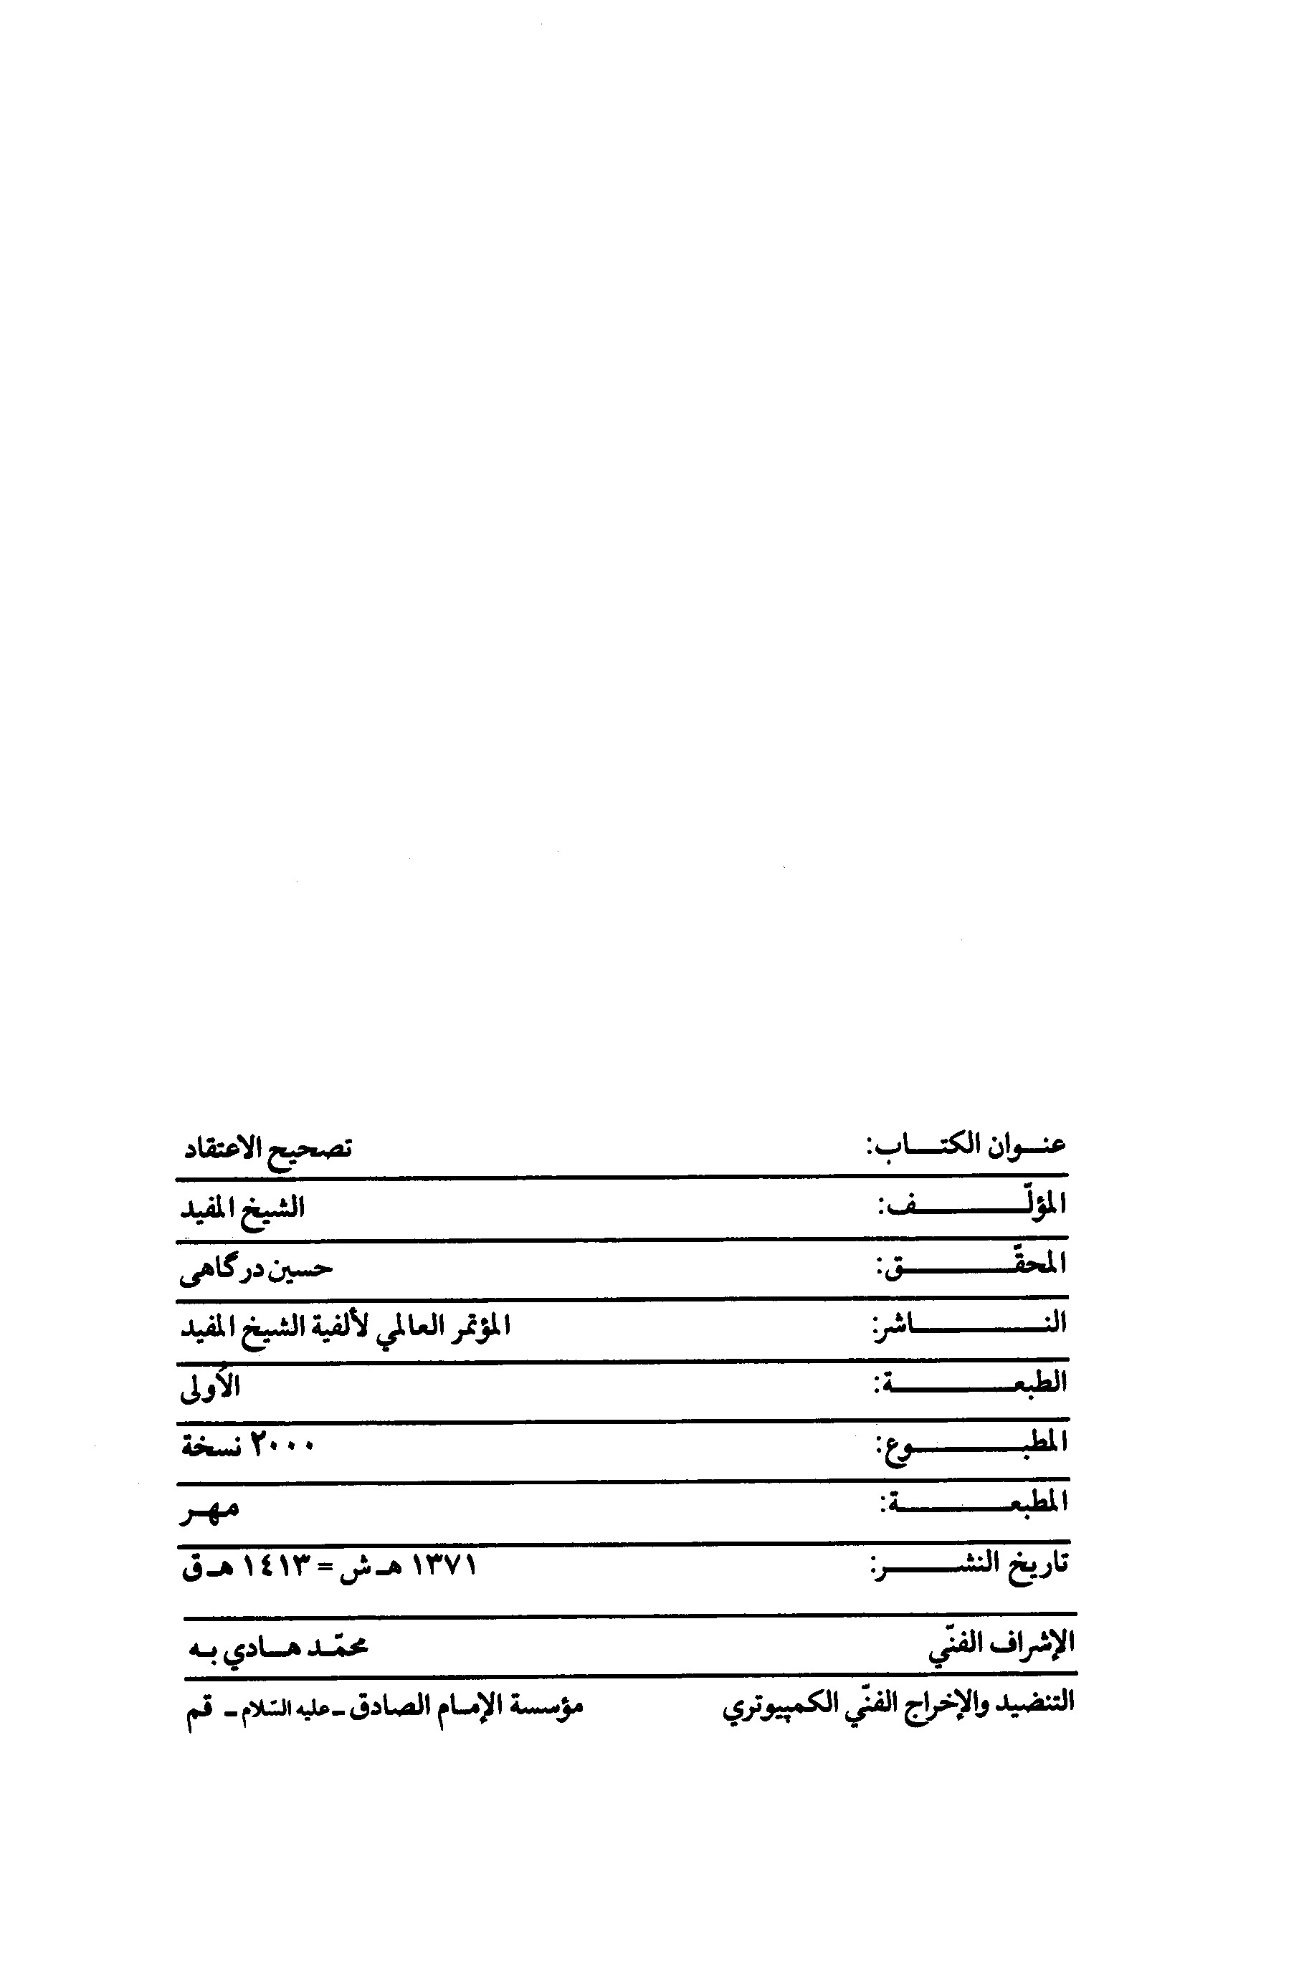 عنوان الكتاب: تصحيح الاعتقاد
المؤلّف: الشيخ المفيد
المحقّق: حسين درگاهى
الناشر: المؤتمر العالمي لألفية الشيخ المفيد
الطبعة: الأُولى
المطبوع: ٢٠٠٠ نسخة
المطبعة: مهر
تاريخ النشر: ١٣٧١ هـ ش = ١٤١٣ هـ ق
الإشراف الفنّي محمّد هادي به
التنضيد والإخراج الفنّي الكمپيوتري مؤسسة الإمام الصادق ـ عليه السّلام ـ قم